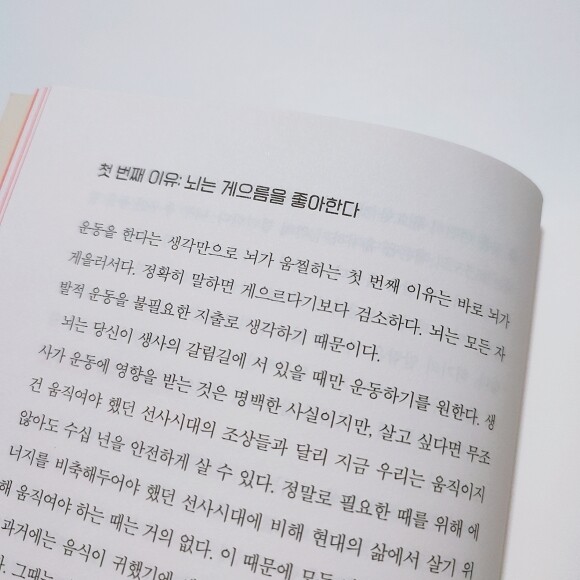 첫 번째 이유: 뇌는 게으름을 좋아한다
운동을 한다는 생각만으로 뇌가 움찔하는 첫 번째 이유는 바로 뇌가
게을러서다. 정확히 말하면 게으르다기보다 검소하다. 뇌는 모든 자
발적 운동을 불필요한 지출로 생각하기 때문이다.
뇌는 당신이 생사의 갈림길에 서 있을 때만 운동하기를 원한다. 생
사가 운동에 영향을 받는 것은 명백한 사실이지만, 살고 싶다면 무조
건 움직여야 했던 선사시대의 조상들과 달리 지금 우리는 움직이지
않아도 수십 년을 안전하게 살 수 있다. 정말로 필요한 때를 위해 에
너지를 비축해두어야 했던 선사시대에 비해 현대의 삶에서 살기 위
해 움직여야 하는 때는 거의 없다. 이 때문에 모든
과거에는 음식이 귀했기에
그때는